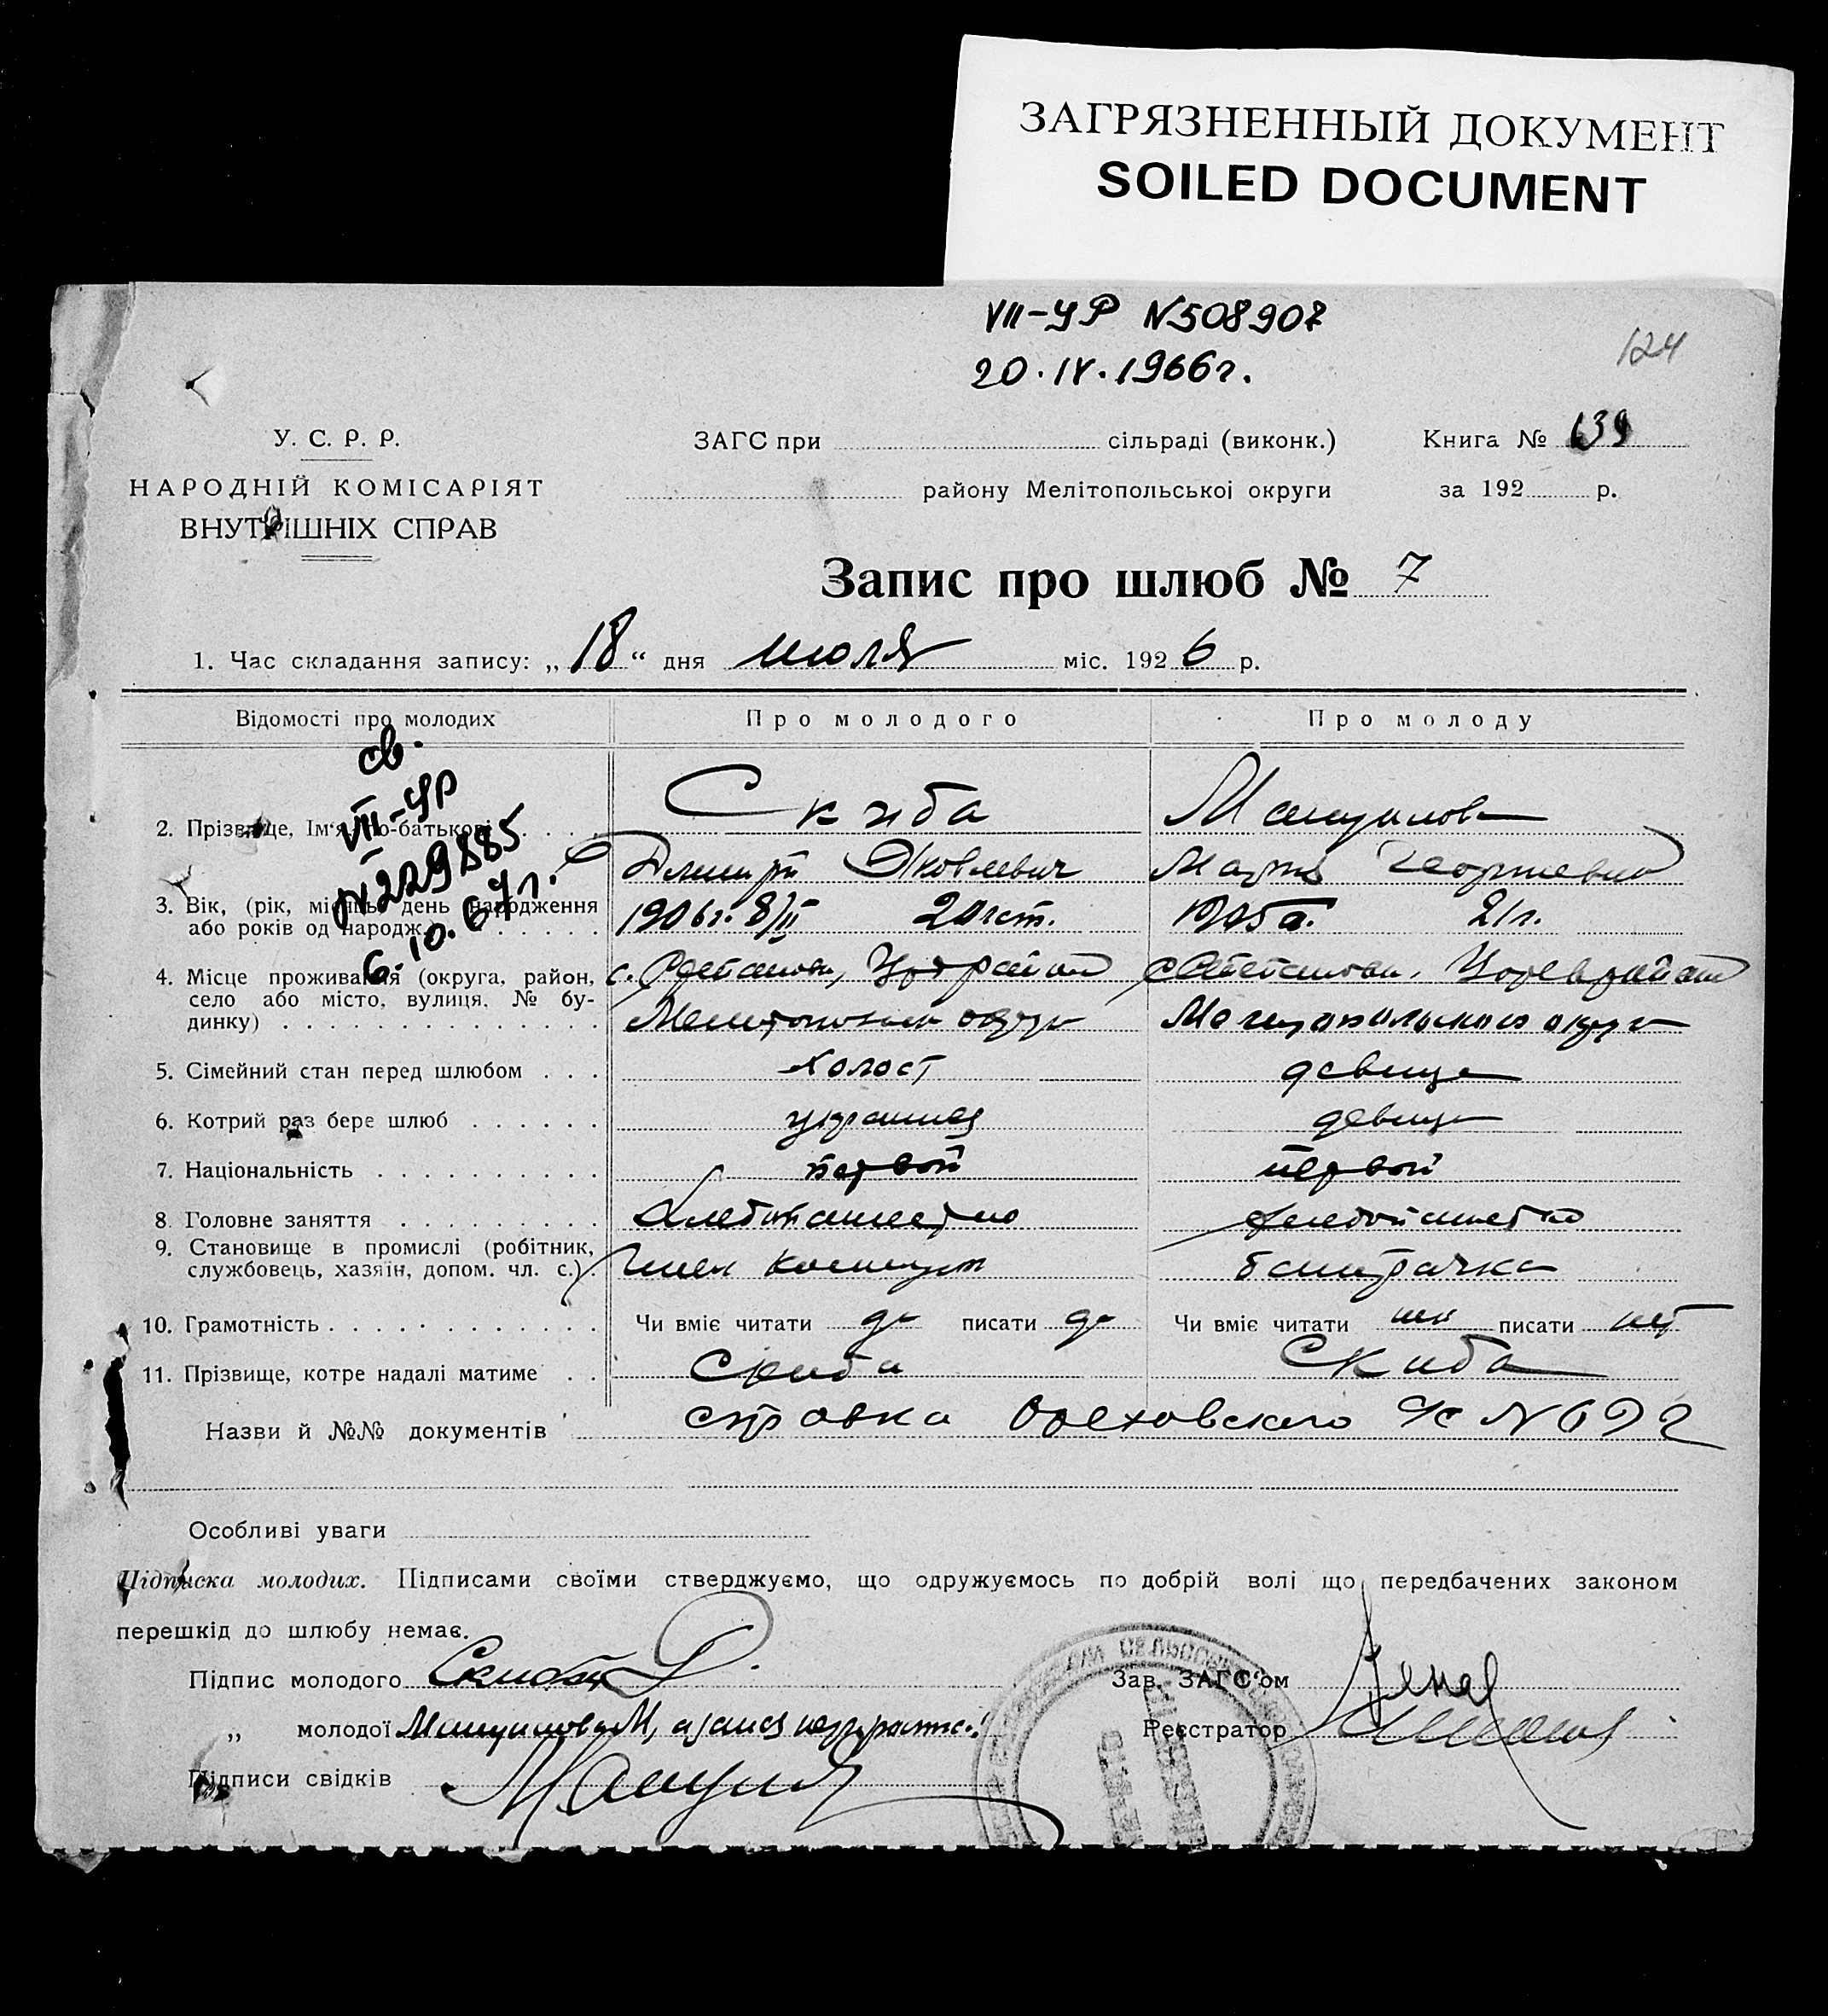 ЗАГРЯЗНЕННЫЙ ДОКУМЕНТ
SOILED DOCUMENT
VII-УР N508907
20.IV.1966г.
124
У. С. Р. Р.
НАРОДНІЙ КОМІСАРІЯТ
ВНУТРІШНІХ СПРАВ
ЗАГС при сільраді (виконк.) Книга № 139
району Мелітопольської округи за 192 р.
Запис про шлюб № 7
1. Час складання запису: „18“ дня июля міс. 1926 р.
Відомості про молодих Про молодого Про молоду
св.
VII-УР
N229885
6.10.67г.
2. Прізвище, Ім'я, по-батькові Скиба
Дмитрий Яковлевич Мария Георгиевна
3. Вік, (рік, місяць, день народження 1906г. 8/II 20 лет. 1905г. 21г.
або років од народж.)
4. Місце проживання (округа, район,
село або місто, вулиця, № бу-
динку) округа Мелитопольского округа
5. Сімейний стан перед шлюбом холост девица
6. Котрий раз бере шлюб украинец девица
7. Національність первой первой
8. Головне заняття
9. Становище в промислі (робітник, член батрачка
службовець, хазяїн, допом. чл. с.)
10. Грамотність Чи вміє читати да писати да Чи вміє читати писати нет
11. Прізвище, котре надалі матиме Скиба Скиба
Назви й №№ документів справка Ореховского N 692
Особливі уваги
Підписка молодих. Підписами своїми стверджуємо, що одружуємось по добрій волі що передбачених законом
перешкід до шлюбу немає.
Підпис молодого Скиба Д. Зав. ЗАГС'ом
„ молодої Реєстратор
Підписи свідків